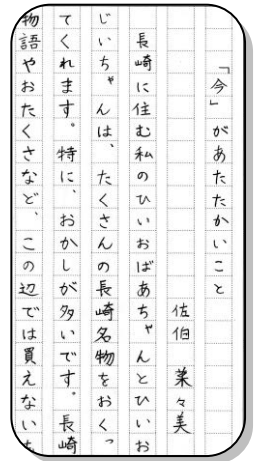 「今」があたたかいこと
佐伯 菜々美
長崎に住む私のひいおばあちゃんとひいお
じいちゃんは、たくさんの長崎名物をおくっ
てくれます。特に、おかしが多いです。長崎
物語やおたくさなど、この辺では買えない